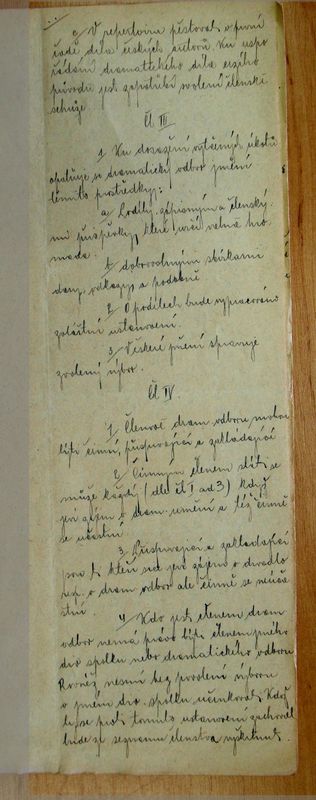 c/ V repertoiru pěstovat v první
řadě díla českých autorů. Ku uspo
řádání dramatického díla cizího
původu jest zapotřebí svolení členské
schůze.
Čl III.
1. Ku dosažení vytčených úkolů
opatřuje si dramatický odbor jmění
těmito prostředky:
a/ Podíly, zápisným a členský
mi příspěvky, které určí valná hro
mada.
dobrovolnými sbírkami
dary, odkazy a podobně
2. O podílech bude vypracováno
zvláštní ustanovení.
3. Veškeré jmění spravuje
zvolený výbor.
Čl IV.
1. Členové dram odboru mohou
býti činní, přispívající a zakládající
2. Činným členem státi se
může každý (dle čl I ad 3) když
jeví zájem o dram. umění a též činně
se účastní
3. Přispívající a zakládající
jsou ti kteří sice jeví zájem o divadlo
resp. o dram odbor ale činně se neúča
stní.
4. Kdo jest členem dram
odboru nemá právo býti členem jiného
div spolku nebo dramatického odboru
Rovněž nesmí bez povolení výboru
v jiném div. spolku účinkovat. Kdož
by se proti tomuto ustanovení zachoval
bude ze seznamu členstva vyškrtnut.